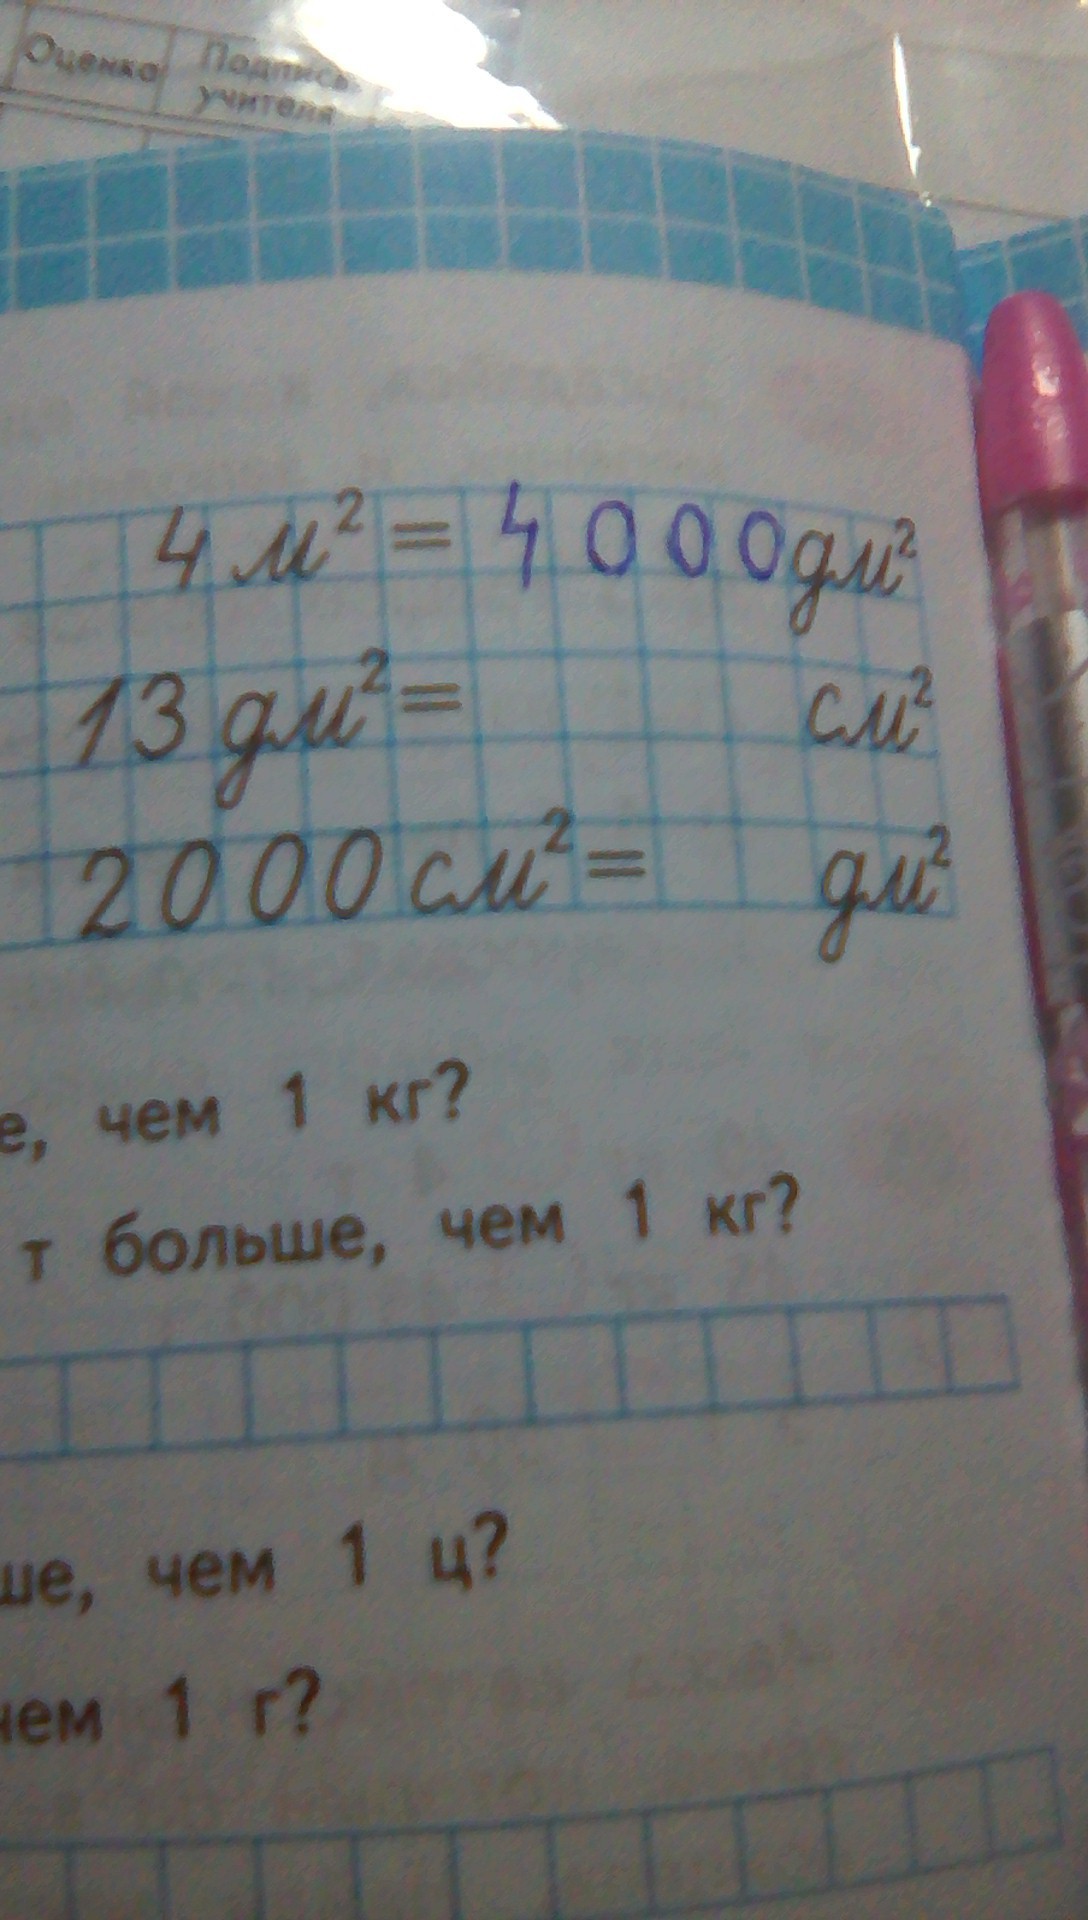 Оценка Подпись
учителя
4 м² = 4000 дм²
13 дм² = см²
2000 см² = дм²
е, чем 1 кг?
т больше, чем 1 кг?
ше, чем 1 ц?
чем 1 г?